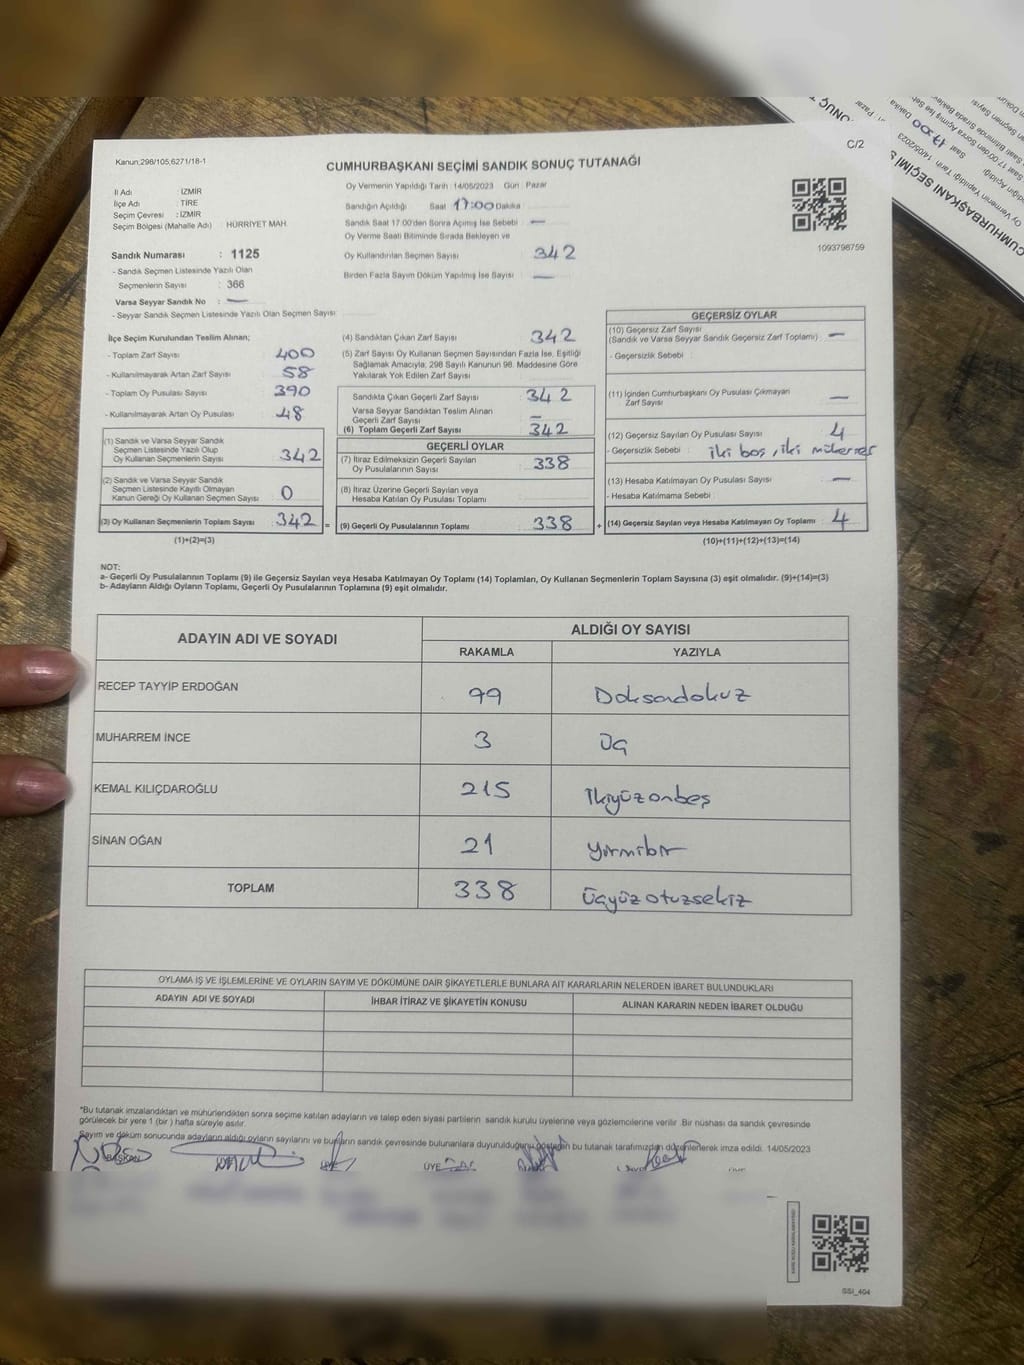 C/2
Kanun;298/105,6271/18-1
CUMHURBAŞKANI SEÇİMİ SANDIK SONUÇ TUTANAĞI
İl Adı : İZMİR
İlçe Adı : TİRE
Seçim Çevresi : İZMİR
Seçim Bölgesi (Mahalle Adı) : HÜRRİYET MAH.
Oy Vermenin Yapıldığı Tarih 14/05/2023 Gün Pazar
Sandığın Açıldığı Saat 17:00 Dakika
Sandık Saat 17.00'den Sonra Açılmış İse Sebebi : —
Oy Verme Saati Bitiminde Sırada Bekleyen ve
Oy Kullandırılan Seçmen Sayısı : 342
Birden Fazla Sayım Döküm Yapılmış İse Sayısı : —
1093798759
Sandık Numarası : 1125
- Sandık Seçmen Listesinde Yazılı Olan
Seçmenlerin Sayısı : 366
Varsa Seyyar Sandık No : —
- Seyyar Sandık Seçmen Listesinde Yazılı Olan Seçmen Sayısı:
İlçe Seçim Kurulundan Teslim Alınan;
- Toplam Zarf Sayısı : 400
- Kullanılmayarak Artan Zarf Sayısı : 58
- Toplam Oy Pusulası Sayısı : 390
- Kullanılmayarak Artan Oy Pusulası : 48
(1) Sandık ve Varsa Seyyar Sandık
Seçmen Listesinde Yazılı Olup
Oy Kullanan Seçmenlerin Sayısı : 342
(2) Sandık ve Varsa Seyyar Sandık
Seçmen Listesinde Kayıtlı Olmayan
Kanun Gereği Oy Kullanan Seçmen Sayısı : 0
(3) Oy Kullanan Seçmenlerin Toplam Sayısı : 342 =
(1)+(2)=(3)
(4) Sandıktan Çıkan Zarf Sayısı : 342
(5) Zarf Sayısı Oy Kullanan Seçmen Sayısından Fazla İse, Eşitliği
Sağlamak Amacıyla, 298 Sayılı Kanunun 98. Maddesine Göre
Yakılarak Yok Edilen Zarf Sayısı :
Sandıkta Çıkan Geçerli Zarf Sayısı : 342
Varsa Seyyar Sandıktan Teslim Alınan
Geçerli Zarf Sayısı : —
(6) Toplam Geçerli Zarf Sayısı : 342
GEÇERLİ OYLAR
(7) İtiraz Edilmeksizin Geçerli Sayılan
Oy Pusulalarının Sayısı : 338
(8) İtiraz Üzerine Geçerli Sayılan veya
Hesaba Katılan Oy Pusulası Toplamı :
(9) Geçerli Oy Pusulalarının Toplamı : 338 +
GEÇERSİZ OYLAR
(10) Geçersiz Zarf Sayısı
(Sandık ve Varsa Seyyar Sandık Geçersiz Zarf Toplamı) : —
- Geçersizlik Sebebi :
(11) İçinden Cumhurbaşkanı Oy Pusulası Çıkmayan
Zarf Sayısı : —
(12) Geçersiz Sayılan Oy Pusulası Sayısı : 4
- Geçersizlik Sebebi : iki boş, iki mükerrer
(13) Hesaba Katılmayan Oy Pusulası Sayısı : —
- Hesaba Katılmama Sebebi :
(14) Geçersiz Sayılan veya Hesaba Katılmayan Oy Toplamı : 4
(10)+(11)+(12)+(13)=(14)
NOT:
a- Geçerli Oy Pusulalarının Toplamı (9) ile Geçersiz Sayılan veya Hesaba Katılmayan Oy Toplamı (14) Toplamları, Oy Kullanan Seçmenlerin Toplam Sayısına (3) eşit olmalıdır. (9)+(14)=(3)
b- Adayların Aldığı Oyların Toplamı, Geçerli Oy Pusulalarının Toplamına (9) eşit olmalıdır.
ADAYIN ADI VE SOYADI
ALDIĞI OY SAYISI
RAKAMLA YAZIYLA
RECEP TAYYİP ERDOĞAN 99 Doksandokuz
MUHARREM İNCE 3 Üç
KEMAL KILIÇDAROĞLU 215 İkiyüzonbeş
SİNAN OĞAN 21 Yirmibir
TOPLAM 338 Üçyüzotuzsekiz
OYLAMA İŞ VE İŞLEMLERİNE VE OYLARIN SAYIM VE DÖKÜMÜNE DAİR ŞİKAYETLERLE BUNLARA AİT KARARLARIN NELERDEN İBARET BULUNDUKLARI
ADAYIN ADI VE SOYADI İHBAR İTİRAZ VE ŞİKAYETİN KONUSU ALINAN KARARIN NEDEN İBARET OLDUĞU
*Bu tutanak imzalandıktan ve mühürlendikten sonra seçime katılan adayların ve talep eden siyasi partilerin sandık kurulu üyelerine veya gözlemcilerine verilir. Bir nüshası da sandık çevresinde
görülecek bir yere 1 (bir) hafta süreyle asılır.
Sayım ve döküm sonucunda adayların aldığı oyların sayılarını ve bunların sandık çevresinde bulunanlara duyurulduğunu gösteren bu tutanak tarafımızdan düzenlenerek imza edildi. 14/05/2023
BAŞKAN ÜYE
SSI_404